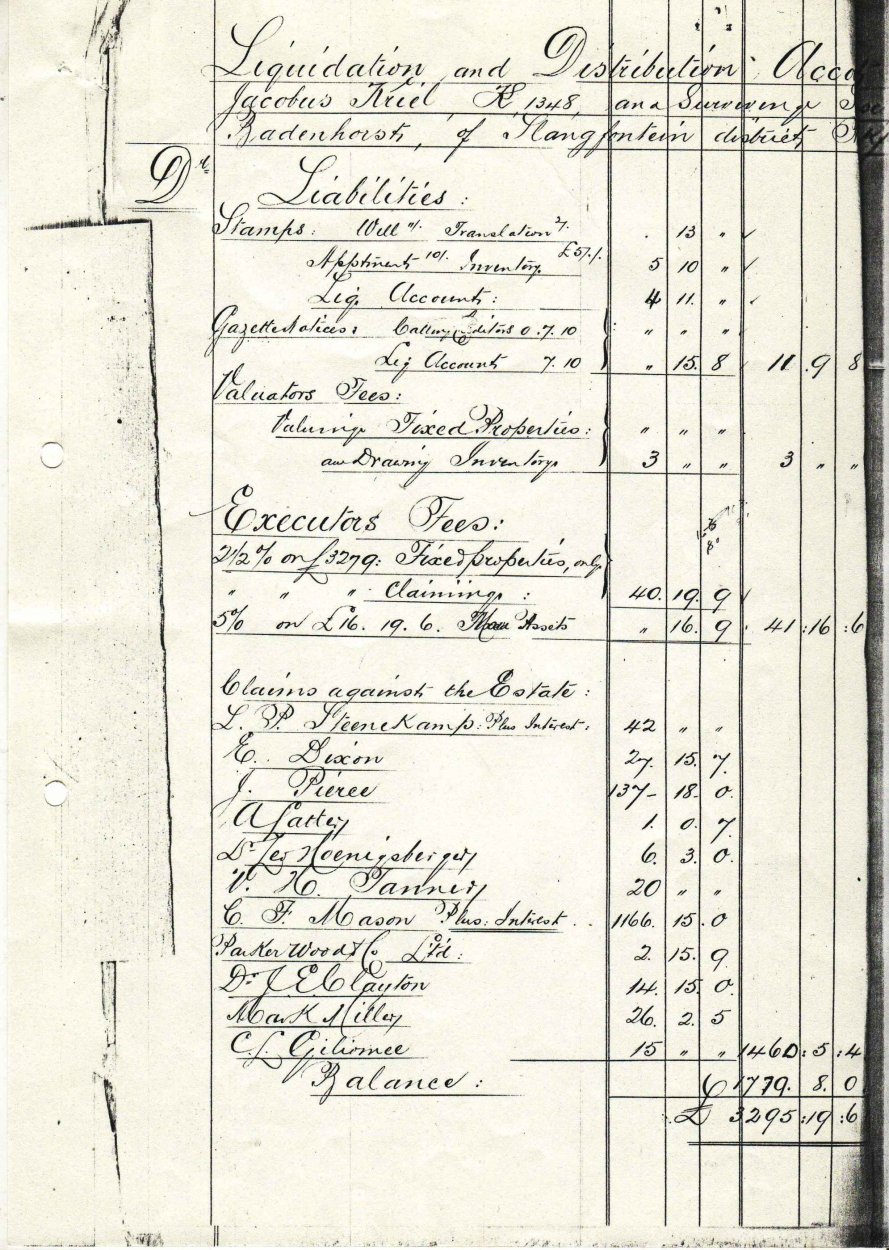 Liquidation and Distribution Acco
Jacobus Kriel K, 1348, and Surviving
Badenhorst, of Slangfontein district,
Dr
Liabilities:
Stamps: Will Translation . 13 "
Apptment 10/. Inventory £5/./. 5 10 "
Liq. Accounts: 4 11. "
Gazette Notices: Calling Creditors 0.7.10 " " "
Liq Accounts 7.10 " 15. 8 11 .9 8
Valuators Fees:
Valuing Fixed Properties: " " "
and Drawing Inventory. 3 " " 3 " "
Executors Fees:
2 1/2 % on £3279: Fixed properties, only
" " " Claiming: 40. 19. 9
5% on £16. 19. 6. Assets " 16. 9 41 :16 :6
Claims against the Estate:
L. P. Steenekamp: Plus Interest: 42 " "
E. Dixon 27. 15. 7.
J. Pierce 137- 18. 0.
A Lattey 1. 0. 7.
Dr Leo Hoenigsberger 6. 3. 0.
V. H. Tanner 20 " "
C. F. Mason Plus: Interest .. 1166. 15. 0
Parker Wood & Co Ltd: 2. 15. 9
Dr J. E. Clayton 14. 15. 0.
Mark Miller 26. 2. 5
C. L. Giliomee 15 " " 1460 :5 :4
Balance: £ 1779. 8. 0
£ 3295 :19 :6